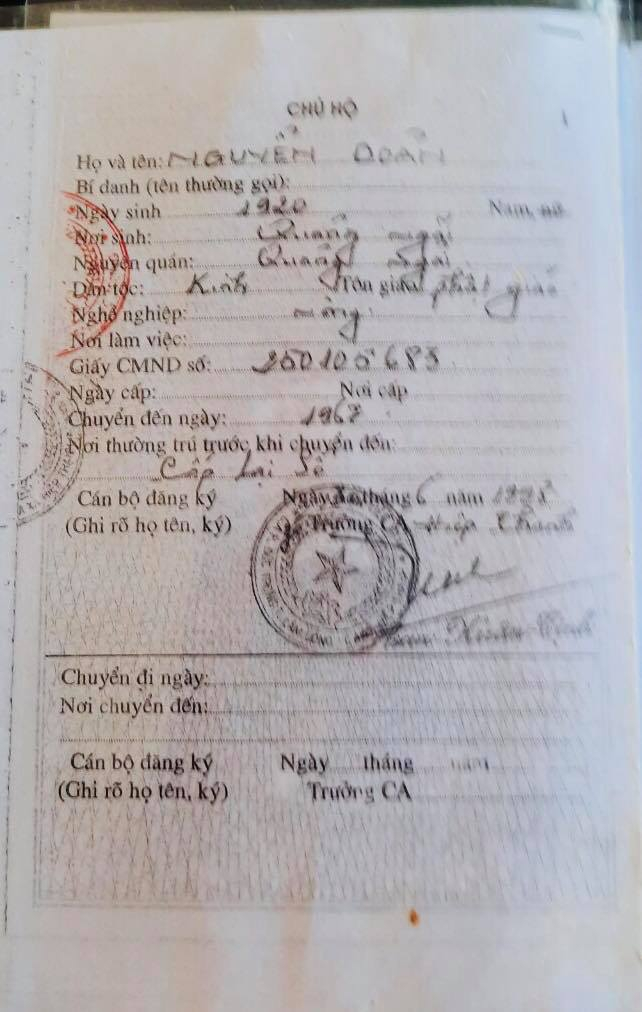 CHỦ HỘ
Họ và tên: NGUYỄN DOÃN
Bí danh (tên thường gọi):
Ngày sinh 1920 Nam, nữ
Nơi sinh: Quảng Ngãi
Nguyên quán: Quảng Ngãi
Dân tộc: Kinh Tôn giáo: phật giáo
Nghề nghiệp: nông
Nơi làm việc:
Giấy CMND số: 250105683
Ngày cấp: Nơi cấp
Chuyển đến ngày: 1967
Nơi thường trú trước khi chuyển đến:
Cấp lại sổ
Cán bộ đăng ký Ngày tháng 6 năm
(Ghi rõ họ tên, ký) Trưởng CA Hiệp Thạnh
Chuyển đi ngày:
Nơi chuyển đến:
Cán bộ đăng ký Ngày tháng năm
(Ghi rõ họ tên, ký) Trưởng CA